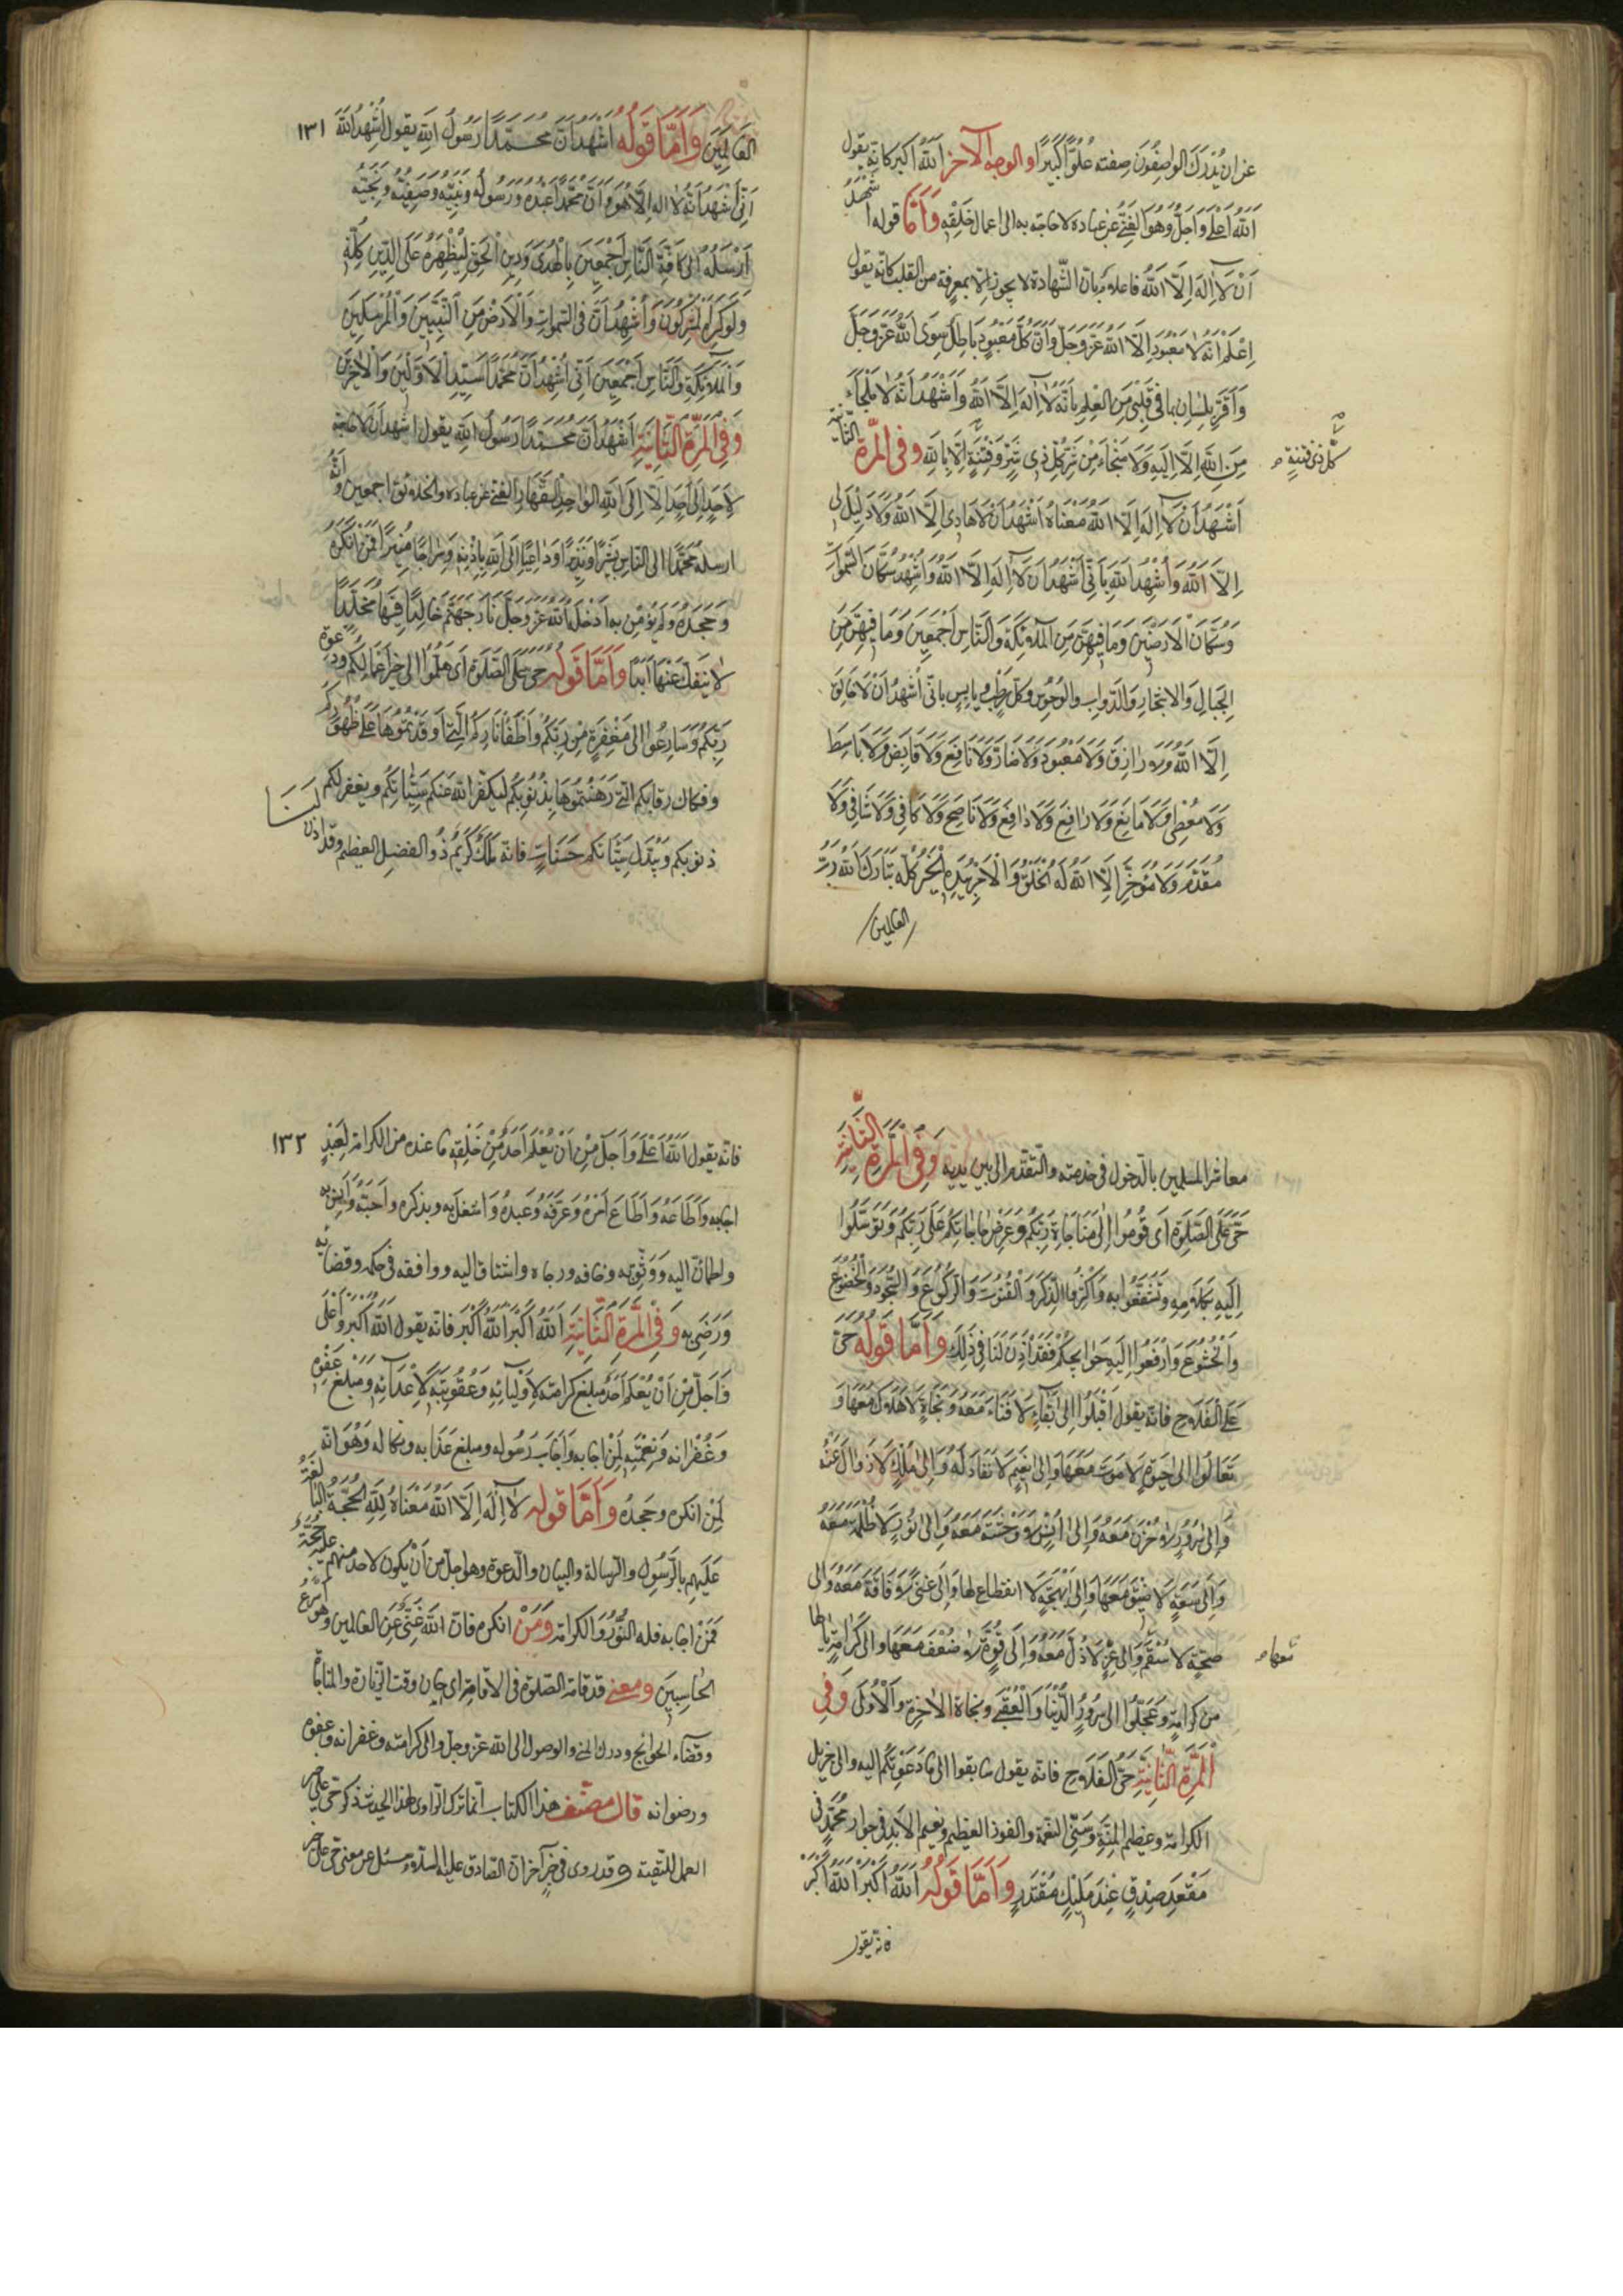 عن ان يدرك الواصفون صفته علوا كبيرا والوجه الآخر الله اكبر كانه يقول
الله اعلى واجل وهو الغني عن عباده لا حاجة به الى اعمال خلقه واما قوله اشهد
ان لا اله الا الله فاعلام بان الشهادة لا يجوز الا بمعرفة من القلب كانه يقول
اعلم انه لا معبود الا الله عز وجل وان كل معبود باطل سوى الله عز وجل
واقر بلساني بما في قلبي من العلم بانه لا اله الا الله واشهد انه لا ملجاء
من الله الا اليه ولا منجاء من شر كل ذي شر وفتنة الا بالله وفي المرة الثانية
كل ذي فتنة
اشهد ان لا اله الا الله معناه اشهد ان لا هادي الا الله ولا دليل لي
الا الله واشهد الله باني اشهد ان لا اله الا الله واشهد سكان السموات
وسكان الارضين وما فيهن من الملائكة والناس اجمعين وما فيهن من
الجبال والاشجار والدواب والوحوش وكل رطب ويابس باني اشهد ان لا خالق
الا الله ولا رازق ولا معبود ولا ضار ولا نافع ولا قابض ولا باسط
ولا معطي ولا مانع ولا رافع ولا دافع ولا ناصح ولا كافي ولا شافي ولا
مقدم ولا مؤخر الا الله له الخلق والامر بيده الخير كله تبارك الله رب
العالمين
١٣١
العالمين واما قوله اشهد ان محمدا رسول الله يقول اشهد الله
اني اشهد انه لا اله الا هو وان محمدا عبده ورسوله ونبيه وصفيه ونجيه
ارسله الى كافة الناس اجمعين بالهدى ودين الحق ليظهره على الدين كله
ولو كره المشركون واشهد ان في السموات والارض من النبيين والمرسلين
والملائكة والناس اجمعين اني اشهد ان محمدا سيد الاولين والآخرين
وفي المرة الثانية اشهد ان محمدا رسول الله يقول اشهد ان لا حاجة
لاحد الى احد الا الى الله الواحد القهار الغني عن عباده والخلائق اجمعين وانه
ارسل محمدا الى الناس بشيرا ونذيرا وداعيا الى الله باذنه وسراجا منيرا فمن انكره
وجحده ولم يؤمن به ادخله الله عز وجل نار جهنم خالدا فيها مخلدا
لا ينفك عنها ابدا واما قوله حي على الصلوة اي هلموا الى خير اعمالكم ودعوة
ربكم وسارعوا الى مغفرة من ربكم واطفاء ناركم التي اوقدتموها على ظهوركم
وفكاك رقابكم التي رهنتموها بذنوبكم ليكفر الله عنكم سيئاتكم ويغفر لكم
ذنوبكم ويبدل سيئاتكم حسنات فانه ملك كريم ذو الفضل العظيم وقد اذن لنا
معاشر المسلمين بالدخول في خدمته والتقدم الى بين يديه وفي المرة الثانية
حي على الصلوة اي قوموا الى مناجاة ربكم وعرض حاجاتكم على ربكم وتوسلوا
اليه بكلامه وتشفعوا به واكثروا الذكر والقنوت والركوع والسجود والخضوع
والخشوع وارفعوا اليه حوائجكم فقد اذن لنا في ذلك واما قوله حي
على الفلاح فانه يقول اقبلوا الى بقاء لا فناء معه ونجاة لا هلاك معها و
تعالوا الى حيوة لا موت معها والى نعيم لا نفاد له والى ملك لا زوال عنه
والى سرور لا حزن معه والى انس لا وحشة معه والى نور لا ظلمة معه
والى سعة لا ضيق معها والى بهجة لا انقطاع لها والى غنى لا فاقة معه والى
صحة لا سقم والى عز لا ذل معه والى قوة لا ضعف معها والى كرامة يا لها
معها
من كرامة وعجلوا الى سرور الدنيا والعقبى ونجاة الآخرة والاولى وفي
المرة الثانية حي الفلاح فانه يقول سابقوا الى ما دعوتكم اليه والى جزيل
الكرامة وعظيم المنة وسني النعمة والفوز العظيم ونعيم الابد في جوار محمد في
مقعد صدق عند مليك مقتدر واما قوله الله اكبر الله اكبر
فانه يقول
١٣٢
فانه يقول الله اعلى واجل من ان يعلم احد من خلقه ما عنده من الكرامة لعبد
اجابه واطاعه واطاع امره وعرفه وعبده واشتغل به وبذكره واحبه وانس به
واطمأن اليه ووثق به وخافه ورجاه واشتاق اليه ووافقه في حكمه وقضائه
ورضي به وفي المرة الثانية الله اكبر الله اكبر فانه يقول الله اكبر واعلى
واجل من ان يعلم احد مبلغ كرامته لاوليائه وعقوبته لاعدائه ومبلغ عفوه
وغفرانه ونعمته لمن اجابه واجاب رسوله ومبلغ عذابه ونكاله وهوانه
لمن انكره وجحده واما قوله لا اله الا الله معناه لله الحجة البالغة
عليهم بالرسول والرسالة والبيان والدعوة وهو اجل من ان يكون لاحد منهم عليه حجة
فمن اجابه فله النور والكرامة ومن انكره فان الله غني عن العالمين وهو اسرع
الحاسبين ومعنى قد قامت الصلوة في الاقامة اي حان وقت الزيارة والمناجاة
وقضاء الحوائج ودرك المنى والوصول الى الله عز وجل والى كرامته وغفرانه وعفوه
ورضوانه قال مصنف هذا الكتاب انما ترك الراوي لهذا الحديث ذكر حي على خير
العمل للتقية وقد روي في خبر آخر ان الصادق عليه السلام سئل عن معنى حي على خير